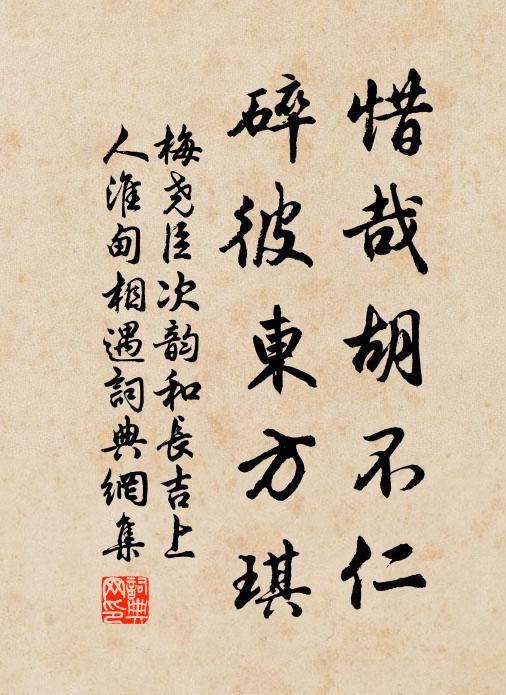 惜哉胡不仁
碎彼東方琪
梅尧臣次韵和長吉上
人淮甸相遇詞典網集
詞典网印